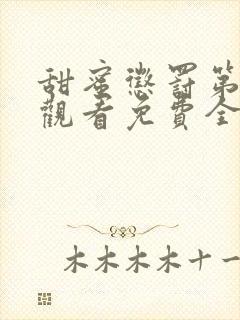 甜蜜懲罰第
觀看免費全
木木木木十一